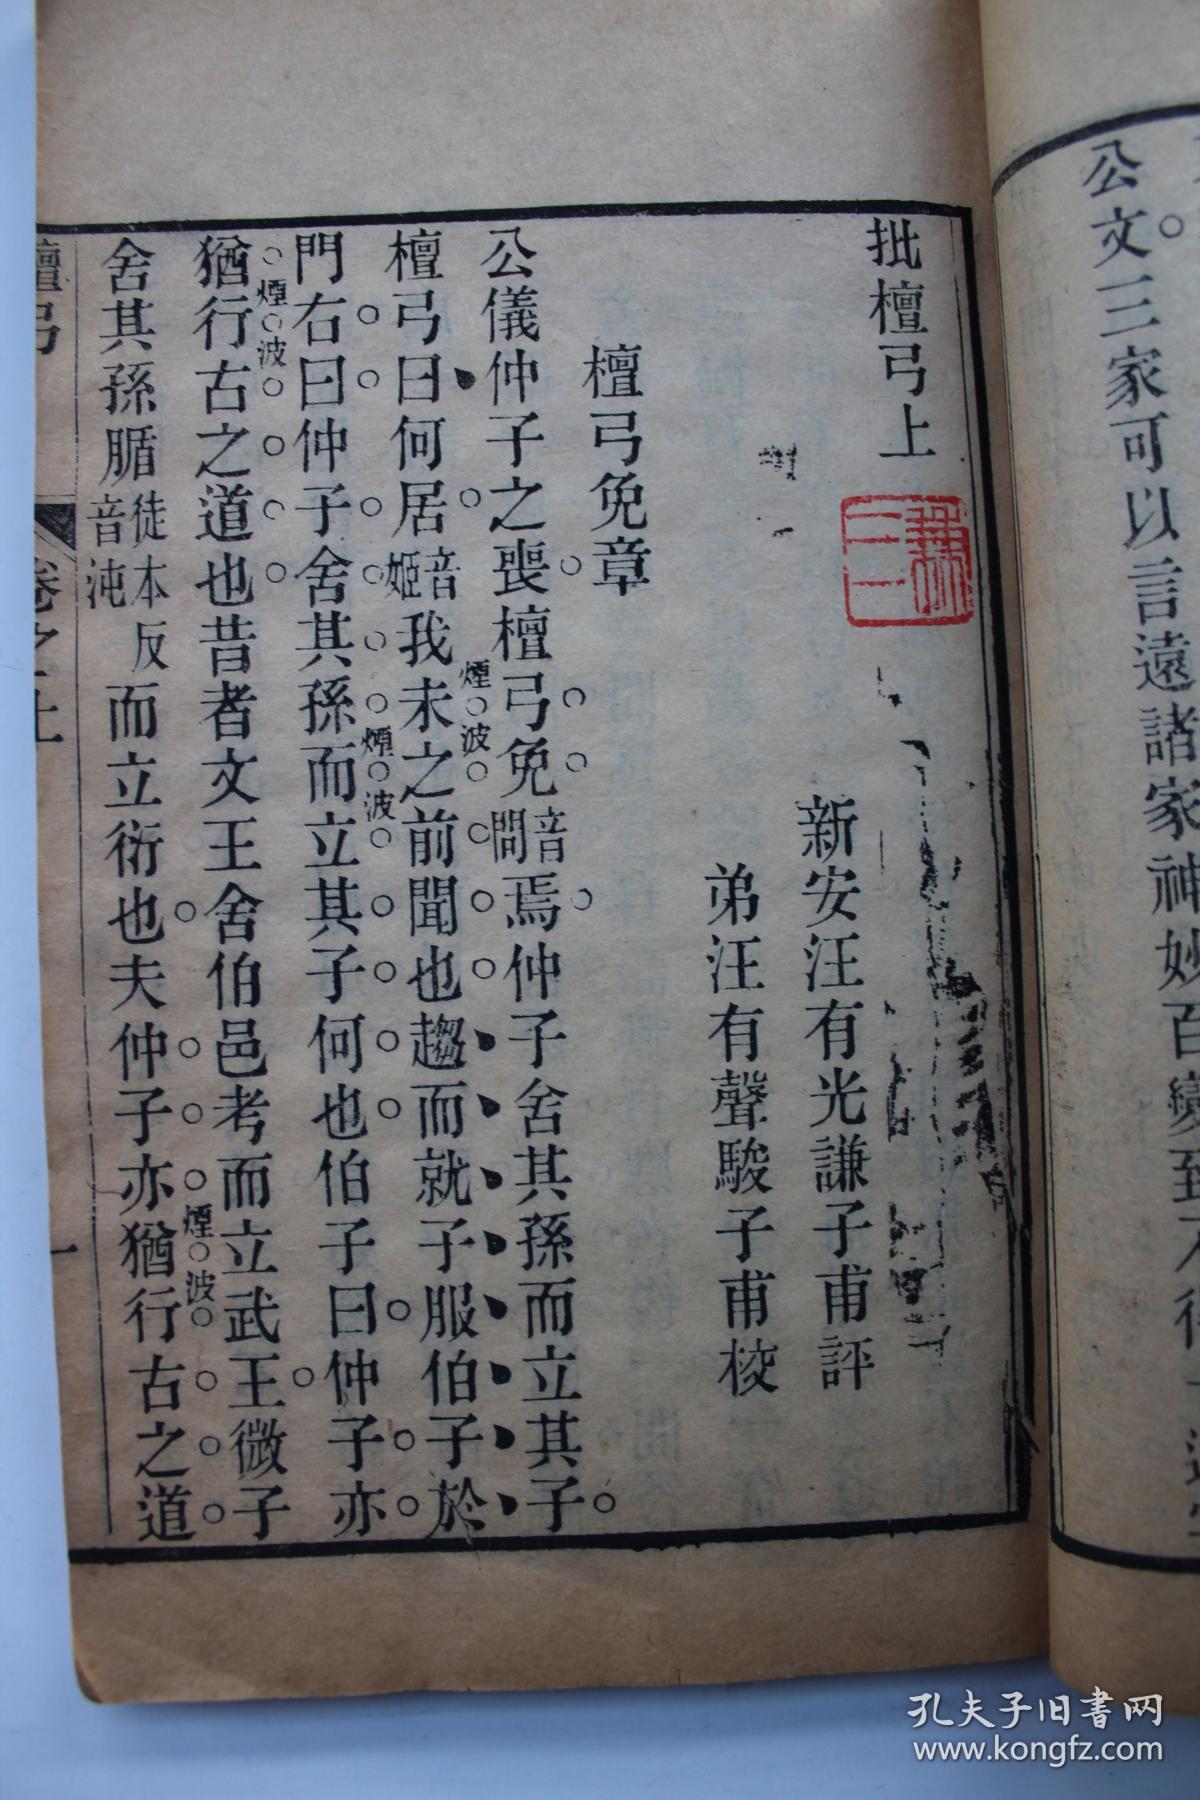 公文三家可以言遠諸家神妙百變到
批檀弓上
新安汪有光謙子甫評
弟汪有聲駿子甫校
檀弓免章
公儀仲子之喪檀弓免音問焉仲子舍其孫而立其子
檀弓曰何居音姬我未之前聞也趨而就子服伯子於
煙波
門右曰仲子舍其孫而立其子何也伯子曰仲子亦
煙波
猶行古之道也昔者文王舍伯邑考而立武王微子
煙波
舍其孫腯徒本反音沌而立衍也夫仲子亦猶行古之道
煙波
檀弓
卷之上
一
孔夫子旧书网
www.kongfz.com